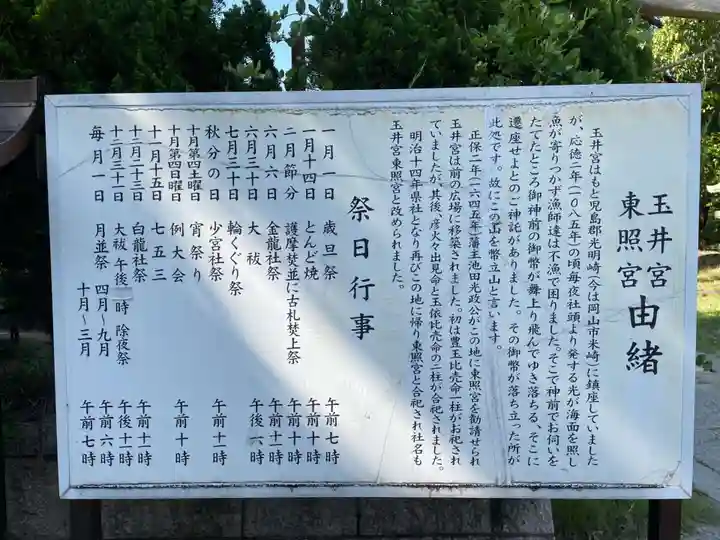 玉井宮
東照宮 由緒
玉井宮はもと児島郡光明崎(今は岡山市米崎)に鎮座していました
が、応徳二年(一〇八五年)の頃毎夜社頭より発する光が海面を照し
漁が寄りつかず漁師達は不漁で困りました。そこで神前でお伺いを
たてたところ御神前の御幣が舞上り飛んでゆき落ちる、そこに
遷座せよとのご神託がありました。その御幣が落ち立った所が
此処です。故にこの山を幣立山と言います。
正保二年(一六四五年)藩主池田光政公がこの地に東照宮を勧請せられ
玉井宮は前の広場に移築されました。初は豊玉比売命一柱がお祀され
ていましたが、其後、彦火々出見命と玉依比売命の二柱が合祀されました。
明治十四年県社となり再びこの地に帰り東照宮と合祀され社名も
玉井宮東照宮と改められました。
祭日行事
一月一日 歳旦祭 午前七時
一月十四日 とんど焼 午前十時
二月節分 護摩焚並に古札焚上祭 午前十時
六月六日 金龍社祭 午前十一時
六月三十日 大祓 午後六時
七月三十日 輪くぐり祭
秋分の日 少宮社祭 午前十一時
十月第四土曜日 宵祭り
十月第四日曜日 例大会 午前十時
十一月十五日 七五三
十二月二十三日 白龍社祭 午前十一時
十二月三十一日 大祓 午後二時 除夜祭 午後十一時
毎月一日 月並祭 四月~九月 午前六時
十月~三月 午前七時